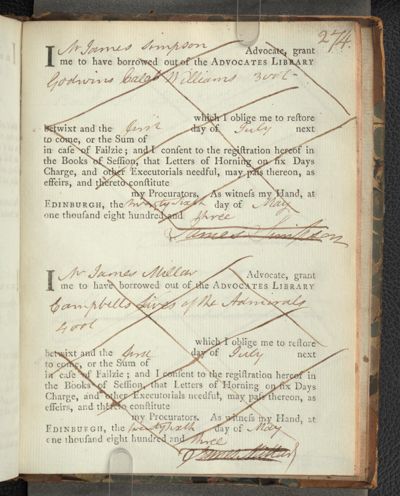 274.
I Mr James Simpson Advocate, grant
me to have borrowed out of the ADVOCATES LIBRARY
Godwins Caleb Williams 3 vols
which I oblige me to reſtore
betwixt and the first day of July next
to come, or the Sum of
in caſe of Failzie; and I conſent to the regiſtration hereof in
the Books of Seſſion, that Letters of Horning on ſix Days
Charge, and other Executorials needful, may paſs thereon, as
effeirs, and thereto conſtitute
my Procurators. As witneſs my Hand, at
EDINBURGH, the twenty sixth day of May
one thouſand eight hundred and three
James Simpson
I Mr James Millar Advocate, grant
me to have borrowed out of the ADVOCATES LIBRARY
Campbells Lives of the Admirals
4 vols
which I oblige me to reſtore
betwixt and the first day of July next
to come, or the Sum of
in caſe of Failzie; and I conſent to the regiſtration hereof in
the Books of Seſſion, that Letters of Horning on ſix Days
Charge, and other Executorials needful, may paſs thereon, as
effeirs, and thereto conſtitute
my Procurators. As witneſs my Hand, at
EDINBURGH, the twenty sixth day of May
one thouſand eight hundred and three
James Millar